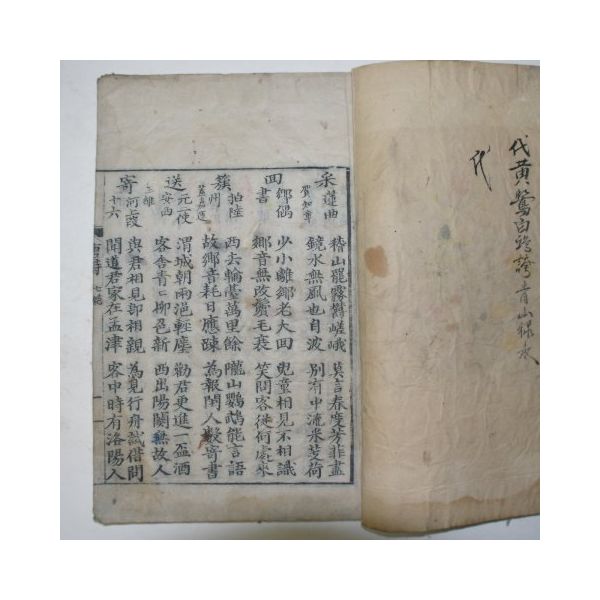 代黃鶯白誇青山綠水
代
采蓮曲 賀知章
稽山罷霧鬱嵯峨 莫言春度芳菲盡
鏡水無風也自波 別有中流采芰荷
回鄉偶書
少小離鄉老大回 兒童相見不相識
鄉音無改鬢毛衰 笑問客從何處來
簇拍陸州 蓋嘉運
西去輪臺萬里餘 隴山鸚鵡能言語
故鄉音耗日應疎 為報閨人數寄書
送元使安西 王維
渭城朝雨浥輕塵 勸君更進一盃酒
客舍青々柳色新 西出陽關無故人
寄河上段十六
與君相見即相親 為見行舟試借問
聞道君家在孟津 客中時有洛陽人
唐詩 七絶